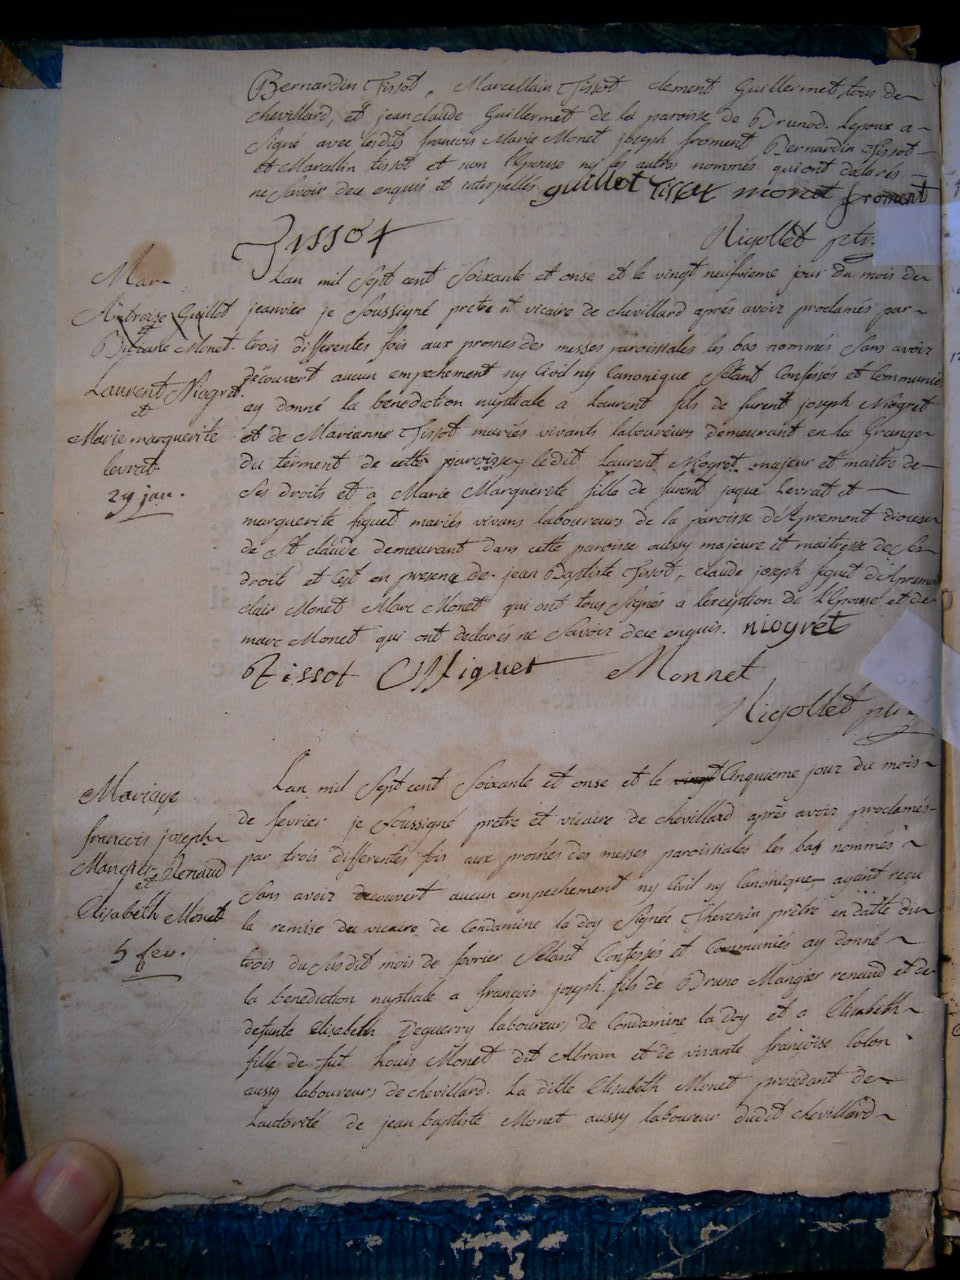 Bernardin Tissot, Marcellain Tissot clement Guillermet, tous de
chevillard, et jean claude Guillermet de la paroisse de Brunod. Lepoux a
signé avec lesdits francois Marie Monet joseph froment Bernardin Tissot
et Marcellin tissot et non l'Epouse ni les autres nommés qui ont déclarés
ne scavoir de ce enquis et interpellés. guillot Tissot monet froment
Tissot Nigollet ptr
Mar
Ambroise Guillot
et
Monet.
Laurent Niogret.
et
Marie marguerite
levrat
29 jan.
Lan mil Sept cent Soixante et onse et le vingt neufvieme jour du mois de
janvier je Soussigné pretre et vicaire de chevillard aprés avoir proclamés par
trois differentes fois aux prones des messes paroissiales les bas nommés Sans avoir
découvert aucun empechement ny Civil ny Canonique Sétant Confessés et Communié
ay donné la benediction nuptiale a Laurent fils de furent joseph Niogret
et de Marianne Tissot mariés vivants laboureurs demeurant en la Grange
du terment de cette paroisse, ledit Laurent Niogret majeur et maitre de
Ses droits et a Marie Marguerite fille de furent jaque Levrat et
marguerite figuet mariés vivans laboureurs de la paroisse d'Apremont diocese
de St claude demeurant dans cette paroisse aussy majeure et maitresse de Ses
droits et c'est en presence de jean Baptiste Tissot, claude joseph figuet d'Apremo
clair Monet Marc Monet qui ont tous Signés a l'exception de l'Epouse et de
marc Monet qui ont declarés ne Scavoir de ce enquis. niogret
Tissot CJfiguet Monnet
Nigollet ptr
Mariage
francois joseph
Mangier Renaud
et
Elisabeth Monet
5 fev.
Lan mil Sept cent Soixante et onse et le vingt Cinquieme jour du mois
de fevrier je Soussigné pretre et vicaire de chevillard après avoir proclamés
par trois differentes fois aux prones des messes paroissiales les bas nommés
Sans avoir decouvert aucun empechement ny Civil ny Canonique, ayant reçu
la remise du vicaire de Condamine la doy Signée Thevenin prêtre en datte du
trois du Susdit mois de fevrier Sétant Confessés et Communiés ay donné
la benediction nuptiale a françois joseph, fils de Bruno Mangier renaud et de
defunte Elisabeth Deguerry laboureurs de Condamine la Doy et a Elisabeth
fille de fut Louis Monet dit Abram et de vivante françoise Colon
aussy laboureurs de chevillard. La ditte Elisabeth Monet procedant de
Lautorité de jean baptiste Monet aussy laboureur dudit chevillard